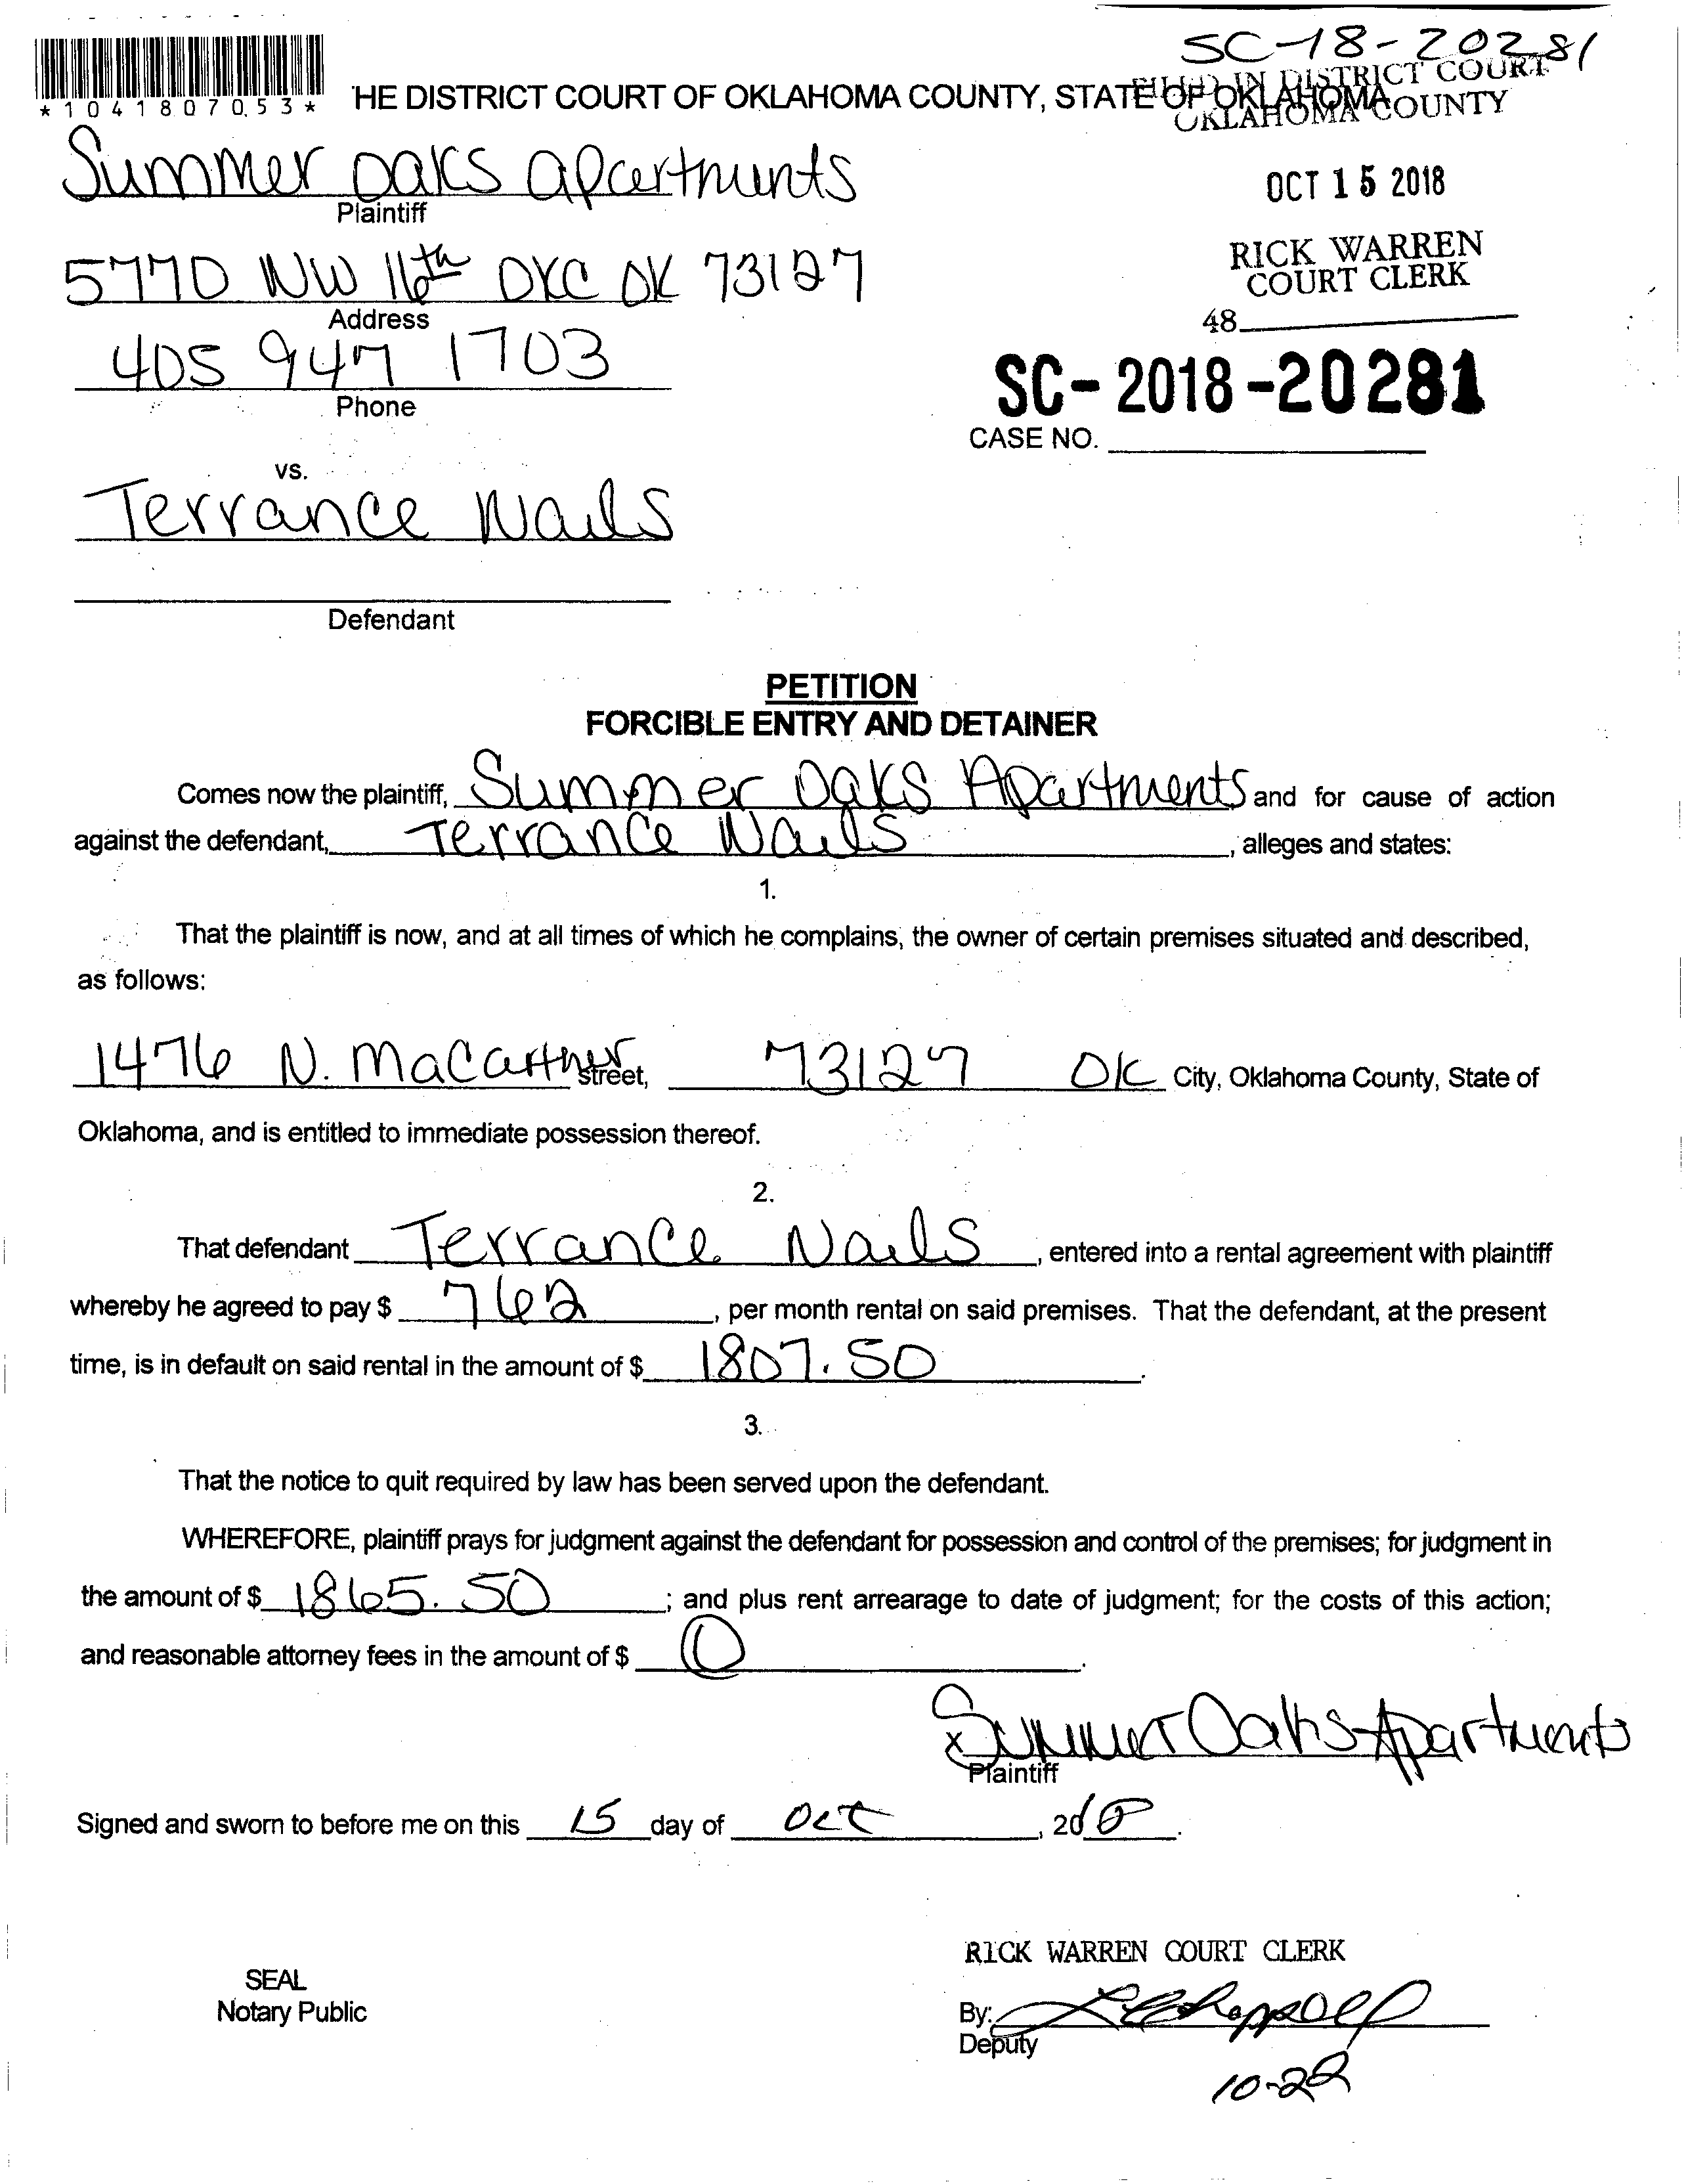 SC-18-20281
*1041807053*
HE DISTRICT COURT OF OKLAHOMA COUNTY, STATE OF OKLAHOMA
FILED IN DISTRICT COURT
OKLAHOMA COUNTY
Summer Oaks Apartments
Plaintiff
OCT 15 2018
5770 NW 16th OKC OK 73127
Address
RICK WARREN
COURT CLERK
48
405 947 1703
Phone
SC-2018-20281
CASE NO.
vs.
Terrance Nails
Defendant
PETITION
FORCIBLE ENTRY AND DETAINER
Comes now the plaintiff, Summer Oaks Apartments and for cause of action
against the defendant, Terrance Nails, alleges and states:
1.
That the plaintiff is now, and at all times of which he complains, the owner of certain premises situated and described,
as follows:
1476 N. Street, 73127 OK City, Oklahoma County, State of
Oklahoma, and is entitled to immediate possession thereof.
2.
That defendant Terrance Nails, entered into a rental agreement with plaintiff
whereby he agreed to pay $ 762, per month rental on said premises. That the defendant, at the present
time, is in default on said rental in the amount of $ 1807.50.
3.
That the notice to quit required by law has been served upon the defendant.
WHEREFORE, plaintiff prays for judgment against the defendant for possession and control of the premises; for judgment in
the amount of $ 1865.50; and plus rent arrearage to date of judgment; for the costs of this action;
and reasonable attorney fees in the amount of $ 0.
x Summer Oaks Apartments
Plaintiff
Signed and sworn to before me on this 15 day of Oct, 2018.
RICK WARREN COURT CLERK
SEAL
Notary Public
By:
Deputy
10-22